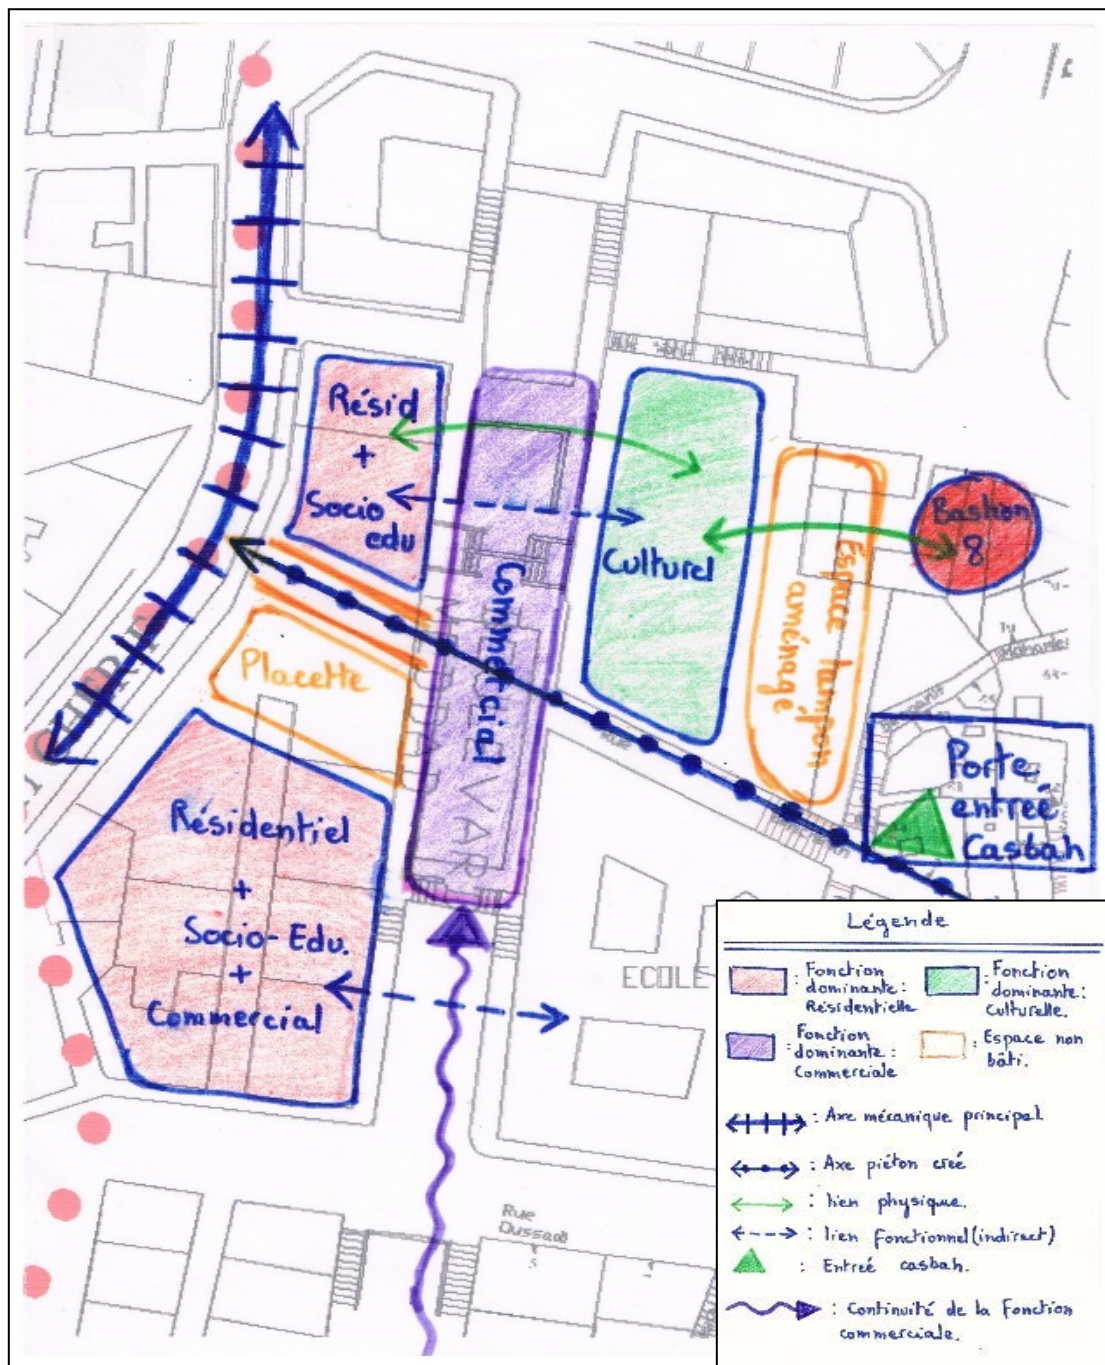 Résid
+
Socio
edu
Commercial
Culturel
Espace tampon
aménagé
Bastion
8
Placette
Porte
entreé
Casbah
Résidentiel
+
Socio-Edu.
+
Commercial
VAR
RUE
ECOLE
Rue
Légende
: Fonction
dominante :
Résidentielle
: Fonction
dominante :
Culturelle.
: Fonction
dominante :
Commerciale
: Espace non
bâti.
: Axe mécanique principal.
: Axe piéton creé
: lien physique.
: lien fonctionnel (indirect)
: Entreé casbah.
: Continuité de la Fonction
commerciale.